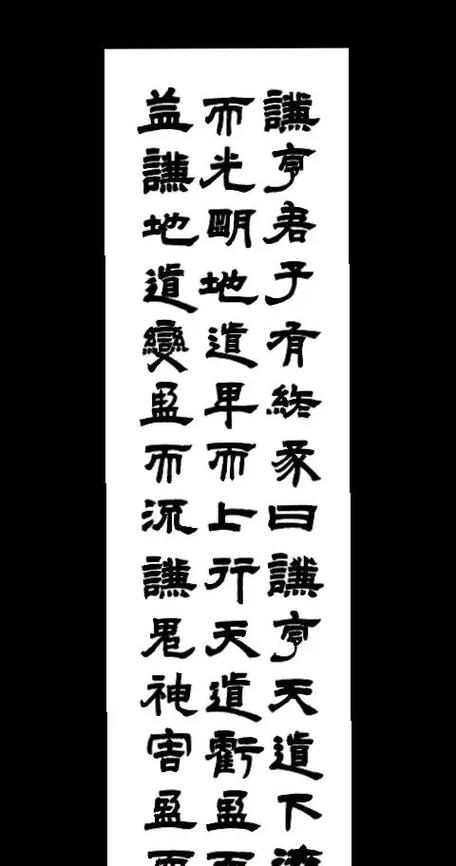 謙亨君子有終彖曰謙亨天道下
而光明地道卑而上行天道虧盈而
益謙地道變盈而流謙鬼神害盈而